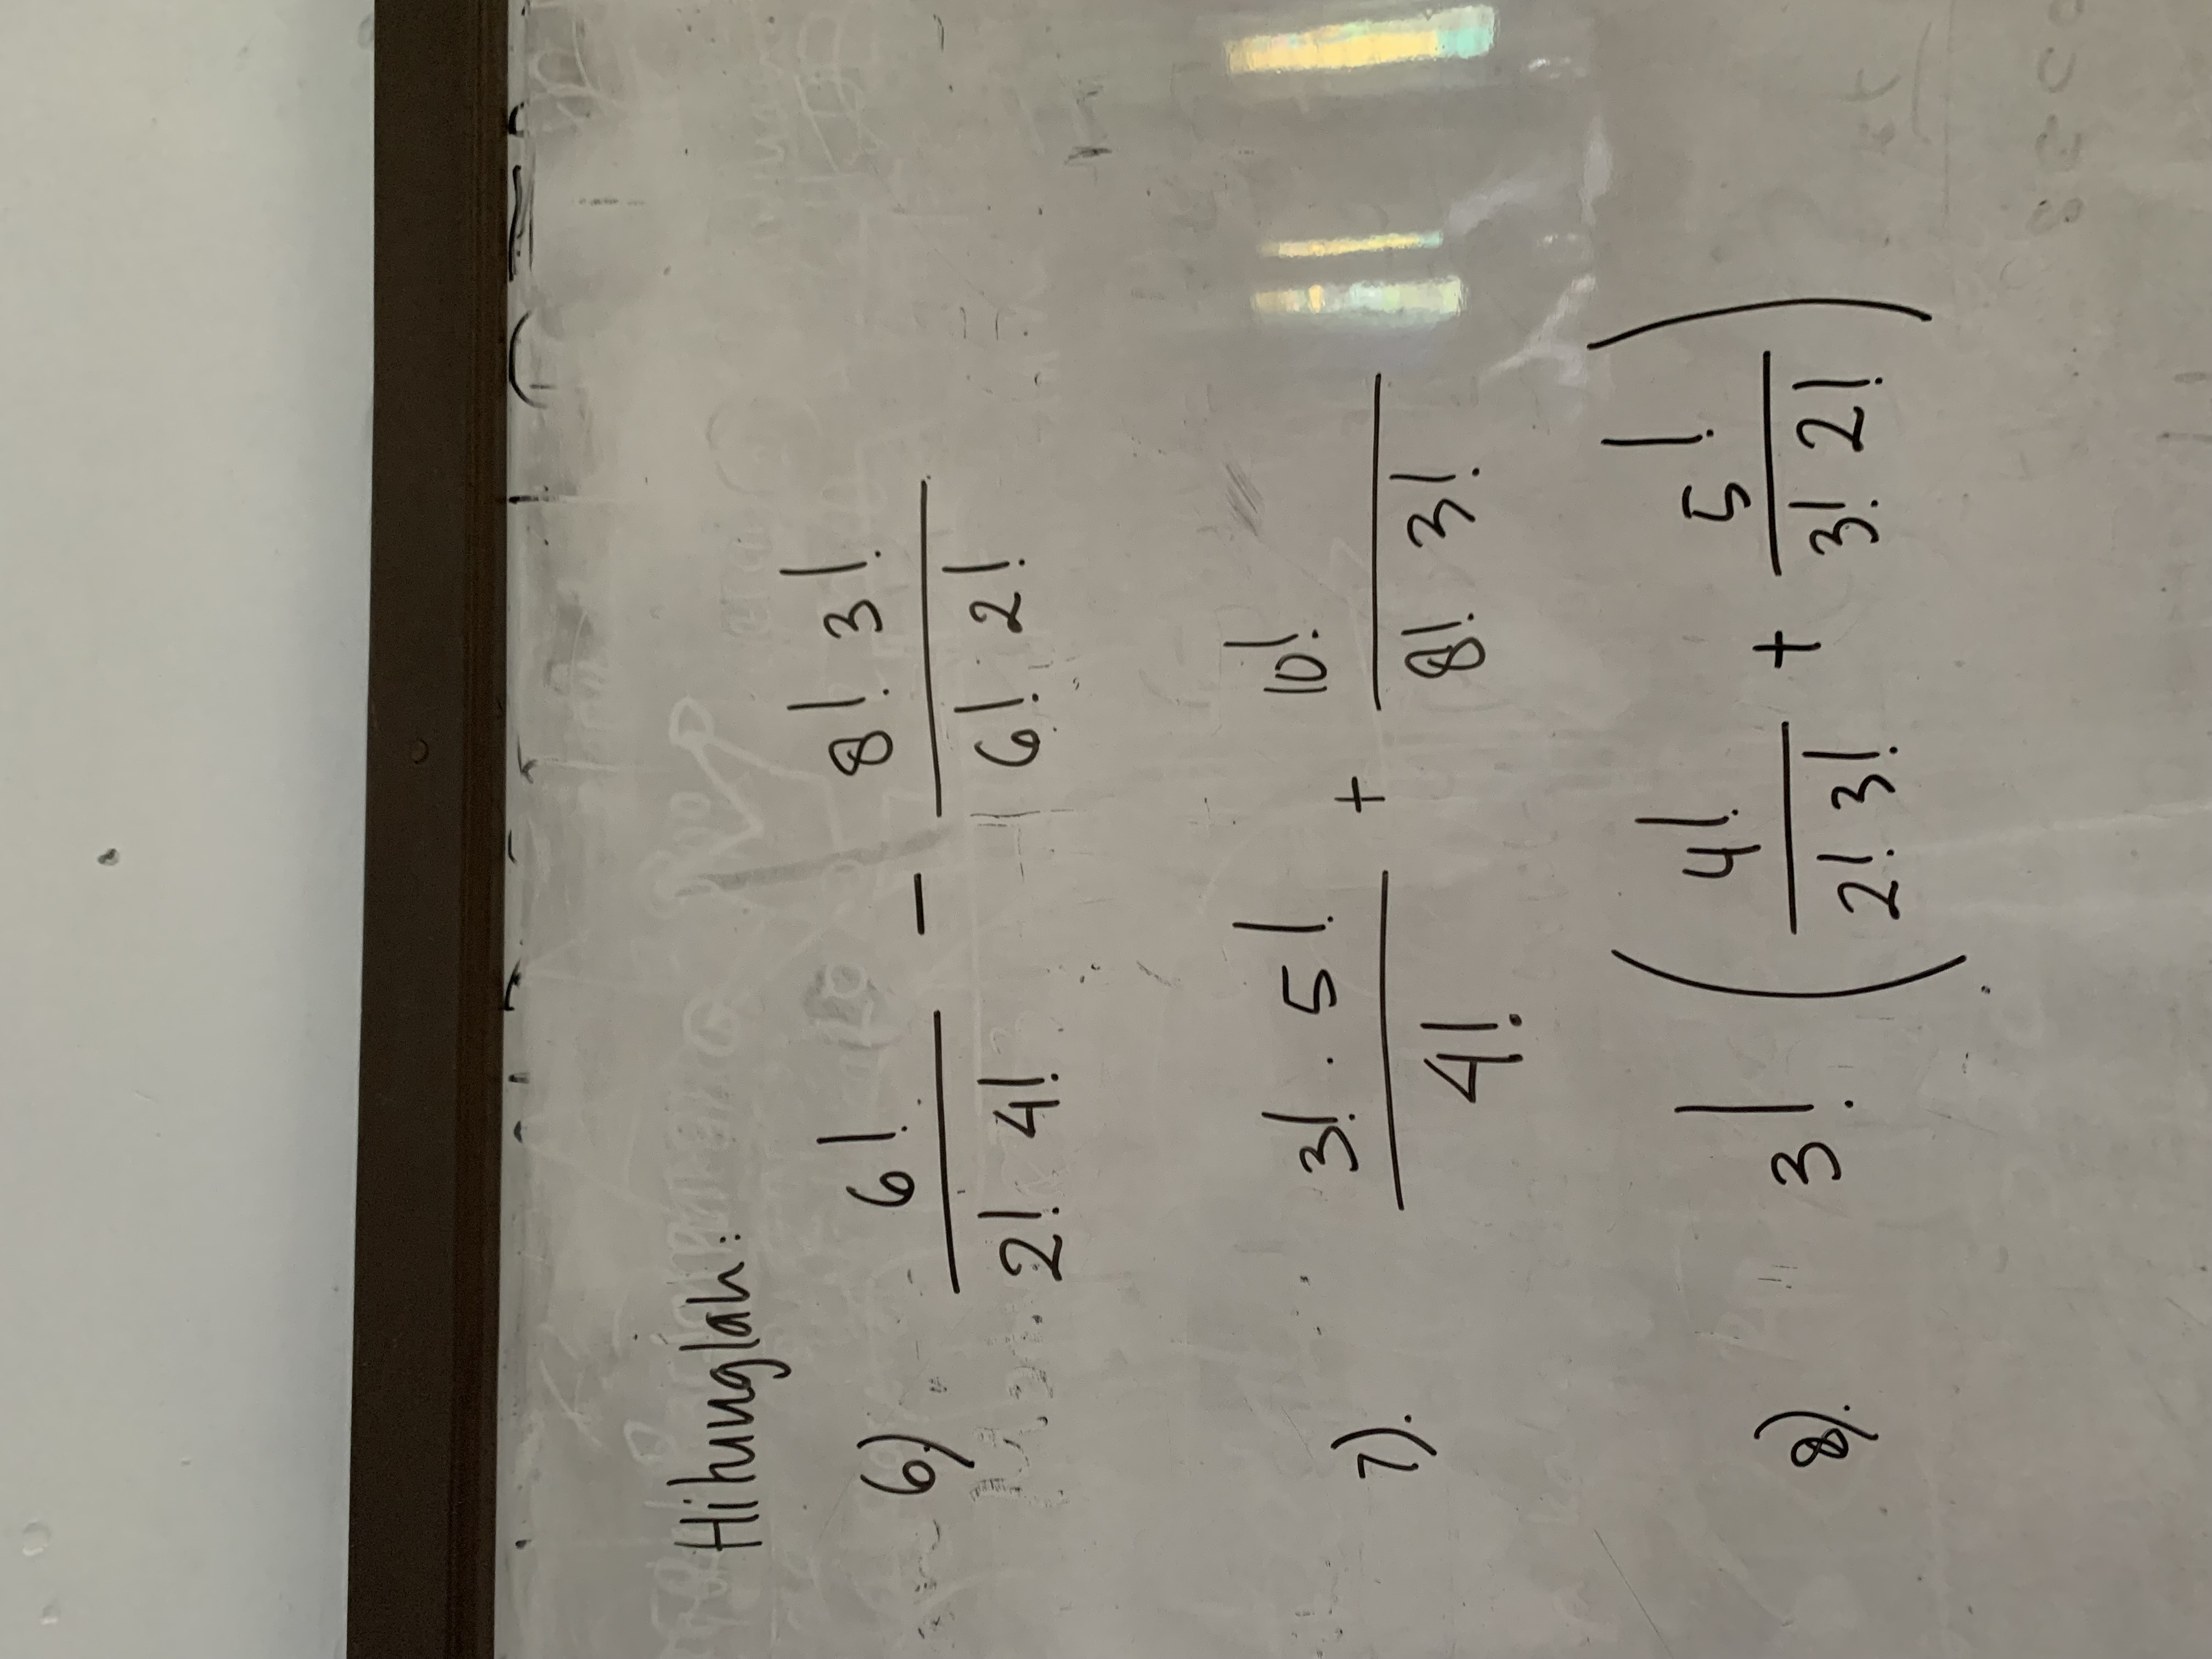 Hitunglah:
6) 6! / 2! 4! - 8! 3! / 6! 2!
7). 3! . 5! / 4! + 10! / 8! 3!
8). 3! ( 4! / 2! 3! + 5! / 3! 2! )